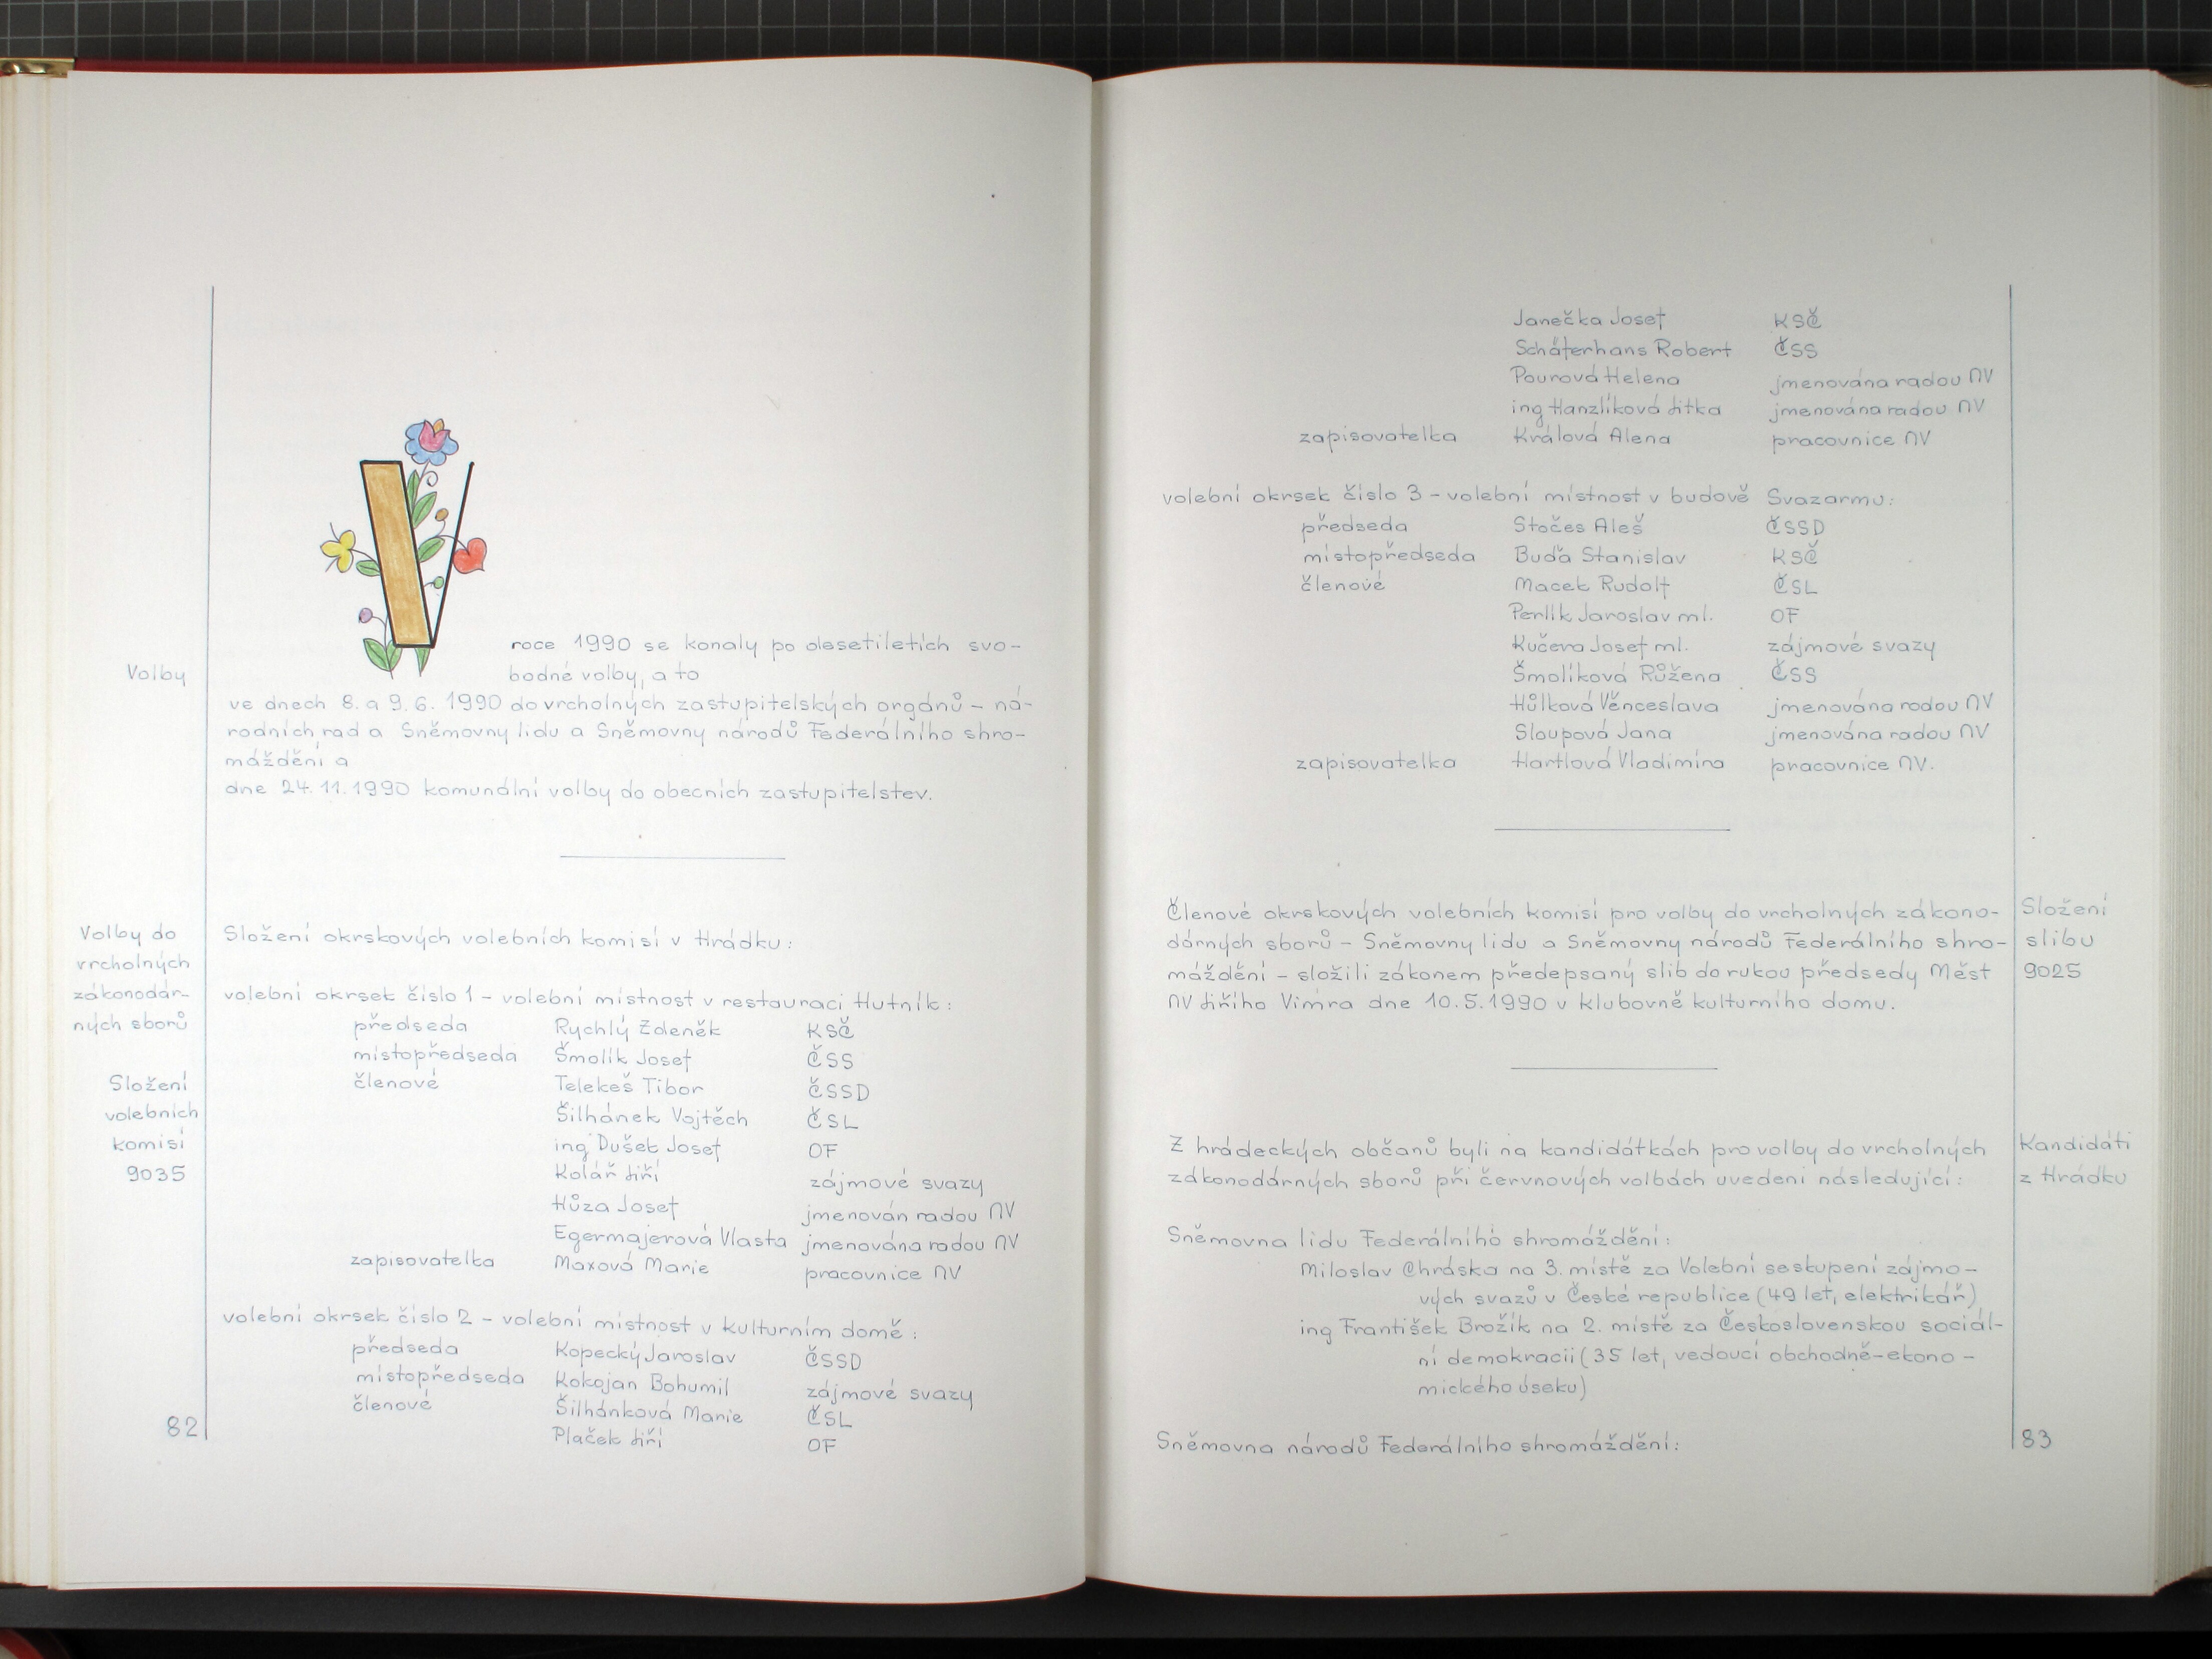 V roce 1990 se konaly po desetiletích svo-
Volby
bodné volby, a to
ve dnech 8. a 9. 6. 1990 do vrcholných zastupitelských orgánů – ná-
rodních rad a Sněmovny lidu a Sněmovny národů Federálního shro-
máždění a
dne 24. 11. 1990 komunální volby do obecních zastupitelstev.
Volby do
vrcholných
zákonodár-
ných sborů
Složení
volebních
komisí
9035
Složení okrskových volebních komisí v Hrádku:
volební okrsek číslo 1 – volební místnost v restauraci Hutník:
předseda Rychlý Zdeněk KSČ
místopředseda Šmolík Josef ČSS
členové Telekeš Tibor ČSSD
Šilhánek Vojtěch ČSL
ing Dušek Josef OF
Kolář Jiří zájmové svazy
Hůza Josef jmenován radou NV
Egermajerová Vlasta jmenována radou NV
zapisovatelka Maxová Marie pracovnice NV
volební okrsek číslo 2 – volební místnost v kulturním domě:
předseda Kopecký Jaroslav ČSSD
místopředseda Kokojan Bohumil zájmové svazy
členové Šilhánková Marie ČSL
Plaček Jiří OF
82
Janečka Josef KSČ
Schäferhans Robert ČSS
Pourová Helena jmenována radou NV
ing Hanzlíková Jitka jmenována radou NV
zapisovatelka Králová Alena pracovnice NV
volební okrsek číslo 3 – volební místnost v budově Svazarmu:
předseda Stočes Aleš ČSSD
místopředseda Buďa Stanislav KSČ
členové Macek Rudolf ČSL
Perlík Jaroslav ml. OF
Kučera Josef ml. zájmové svazy
Šmolíková Růžena ČSS
Hůlková Věnceslava jmenována radou NV
Sloupová Jana jmenována radou NV
zapisovatelka Hartlová Vladimíra pracovnice NV.
Členové okrskových volebních komisí pro volby do vrcholných zákono-
dárných sborů – Sněmovny lidu a Sněmovny národů Federálního shro-
máždění – složili zákonem předepsaný slib do rukou předsedy Měst
NV Jiřího Vimra dne 10. 5. 1990 v klubovně kulturního domu.
Složení
slibu
9025
Z hrádeckých občanů byli na kandidátkách pro volby do vrcholných
zákonodárných sborů při červnových volbách uvedeni následující:
Kandidáti
z Hrádku
Sněmovna lidu Federálního shromáždění:
Miloslav Chráska na 3. místě za Volební seskupení zájmo-
vých svazů v České republice (49 let, elektrikář)
ing František Brožík na 2. místě za Československou sociál-
ní demokracii (35 let, vedoucí obchodně-ekono-
mického úseku)
Sněmovna národů Federálního shromáždění:
83